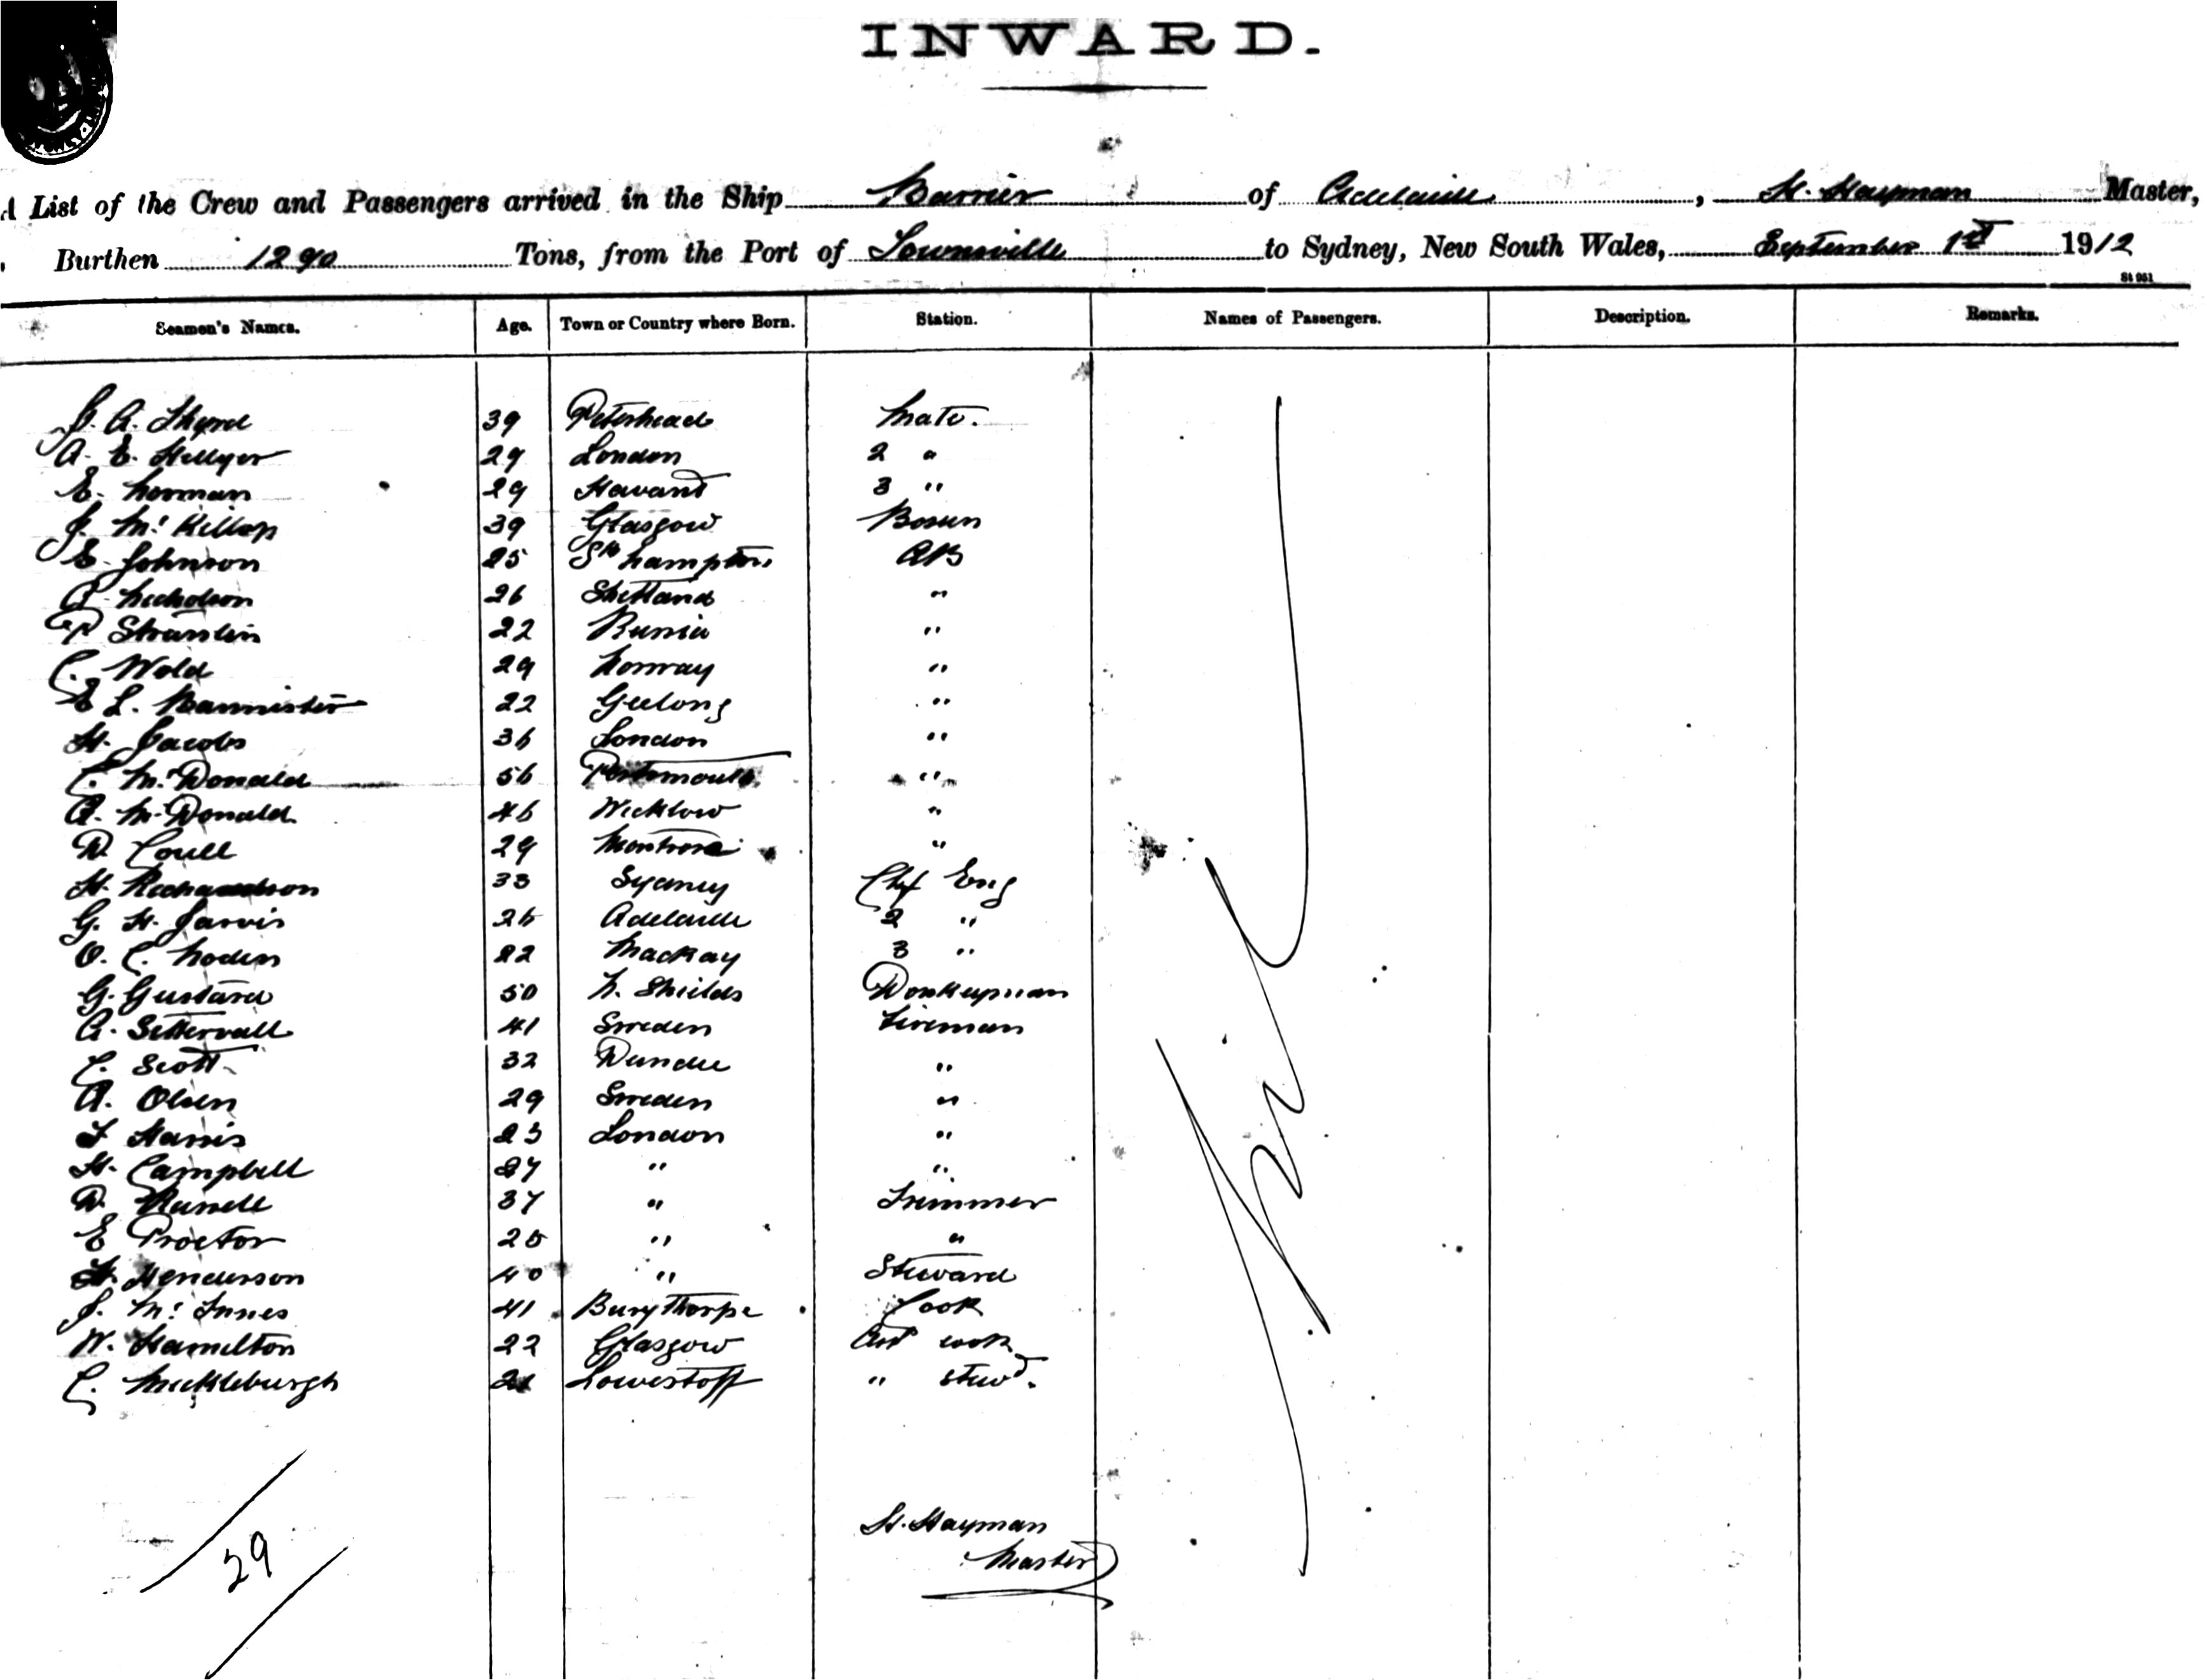 INWARD.
A List of the Crew and Passengers arrived in the Ship Barrier of Adelaide, H. Hayman Master,
Burthen 1290 Tons, from the Port of Townsville to Sydney, New South Wales, September 1st 1912
St 951
Seamen's Names. Age. Town or Country where Born. Station. Names of Passengers. Description. Remarks.
J. A. 39 Peterhead Mate.
A. E. Hillyer 29 London 2 "
E. Norman 29 Havant 3 "
J. Mc Killop 39 Glasgow Bosun
E. Johnson 25 Sth hampton AB
A. Nicholson 26 Shetland "
P 22 Russia "
C. Wold 29 Norway "
E L. Bannister 22 Geelong "
H. Jacobs 36 London "
C. Mc Donald 56 Portsmouth "
A. Mc Donald 46 Wicklow "
D. Coull 29 Montrose "
H. Richardson 33 Sydney Chf Eng
G. H. Jarvis 26 Adelaide 2 "
O. C. Noden 22 Mackay 3 "
G. Gustard 50 N. Shields Donkeyman
A. Settervall 41 Sweden Fireman
C. Scott 32 Dundee "
A. Olsen 29 Sweden "
F Harris 23 London "
H. Campbell 27 " "
D. 37 " Trimmer
E Proctor 25 " "
H. Henderson 40 " Steward
J. Mc Innes 41 Bury Thorpe Cook
W. Hamilton 22 Glasgow Asst cook
C. Mickleburgh Lowestoff " stewd.
Nil
H. Hayman
Master
29